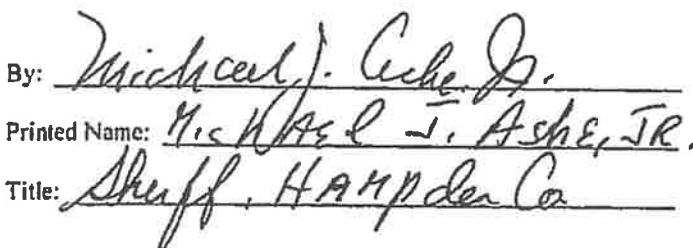 By: Michael J. Ashe Jr.
Printed Name: MichAel J. AshE, JR.
Title: Sheriff, HAMpden Co